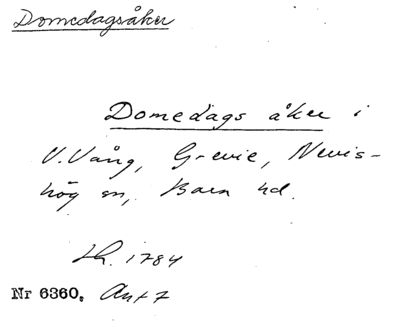 Domedagsåker
Domedags åker i
V. Vång, Grevie, Nevis-
hög sn, Bara hd.
Lh. 1784
Nr 6360. Ant 7